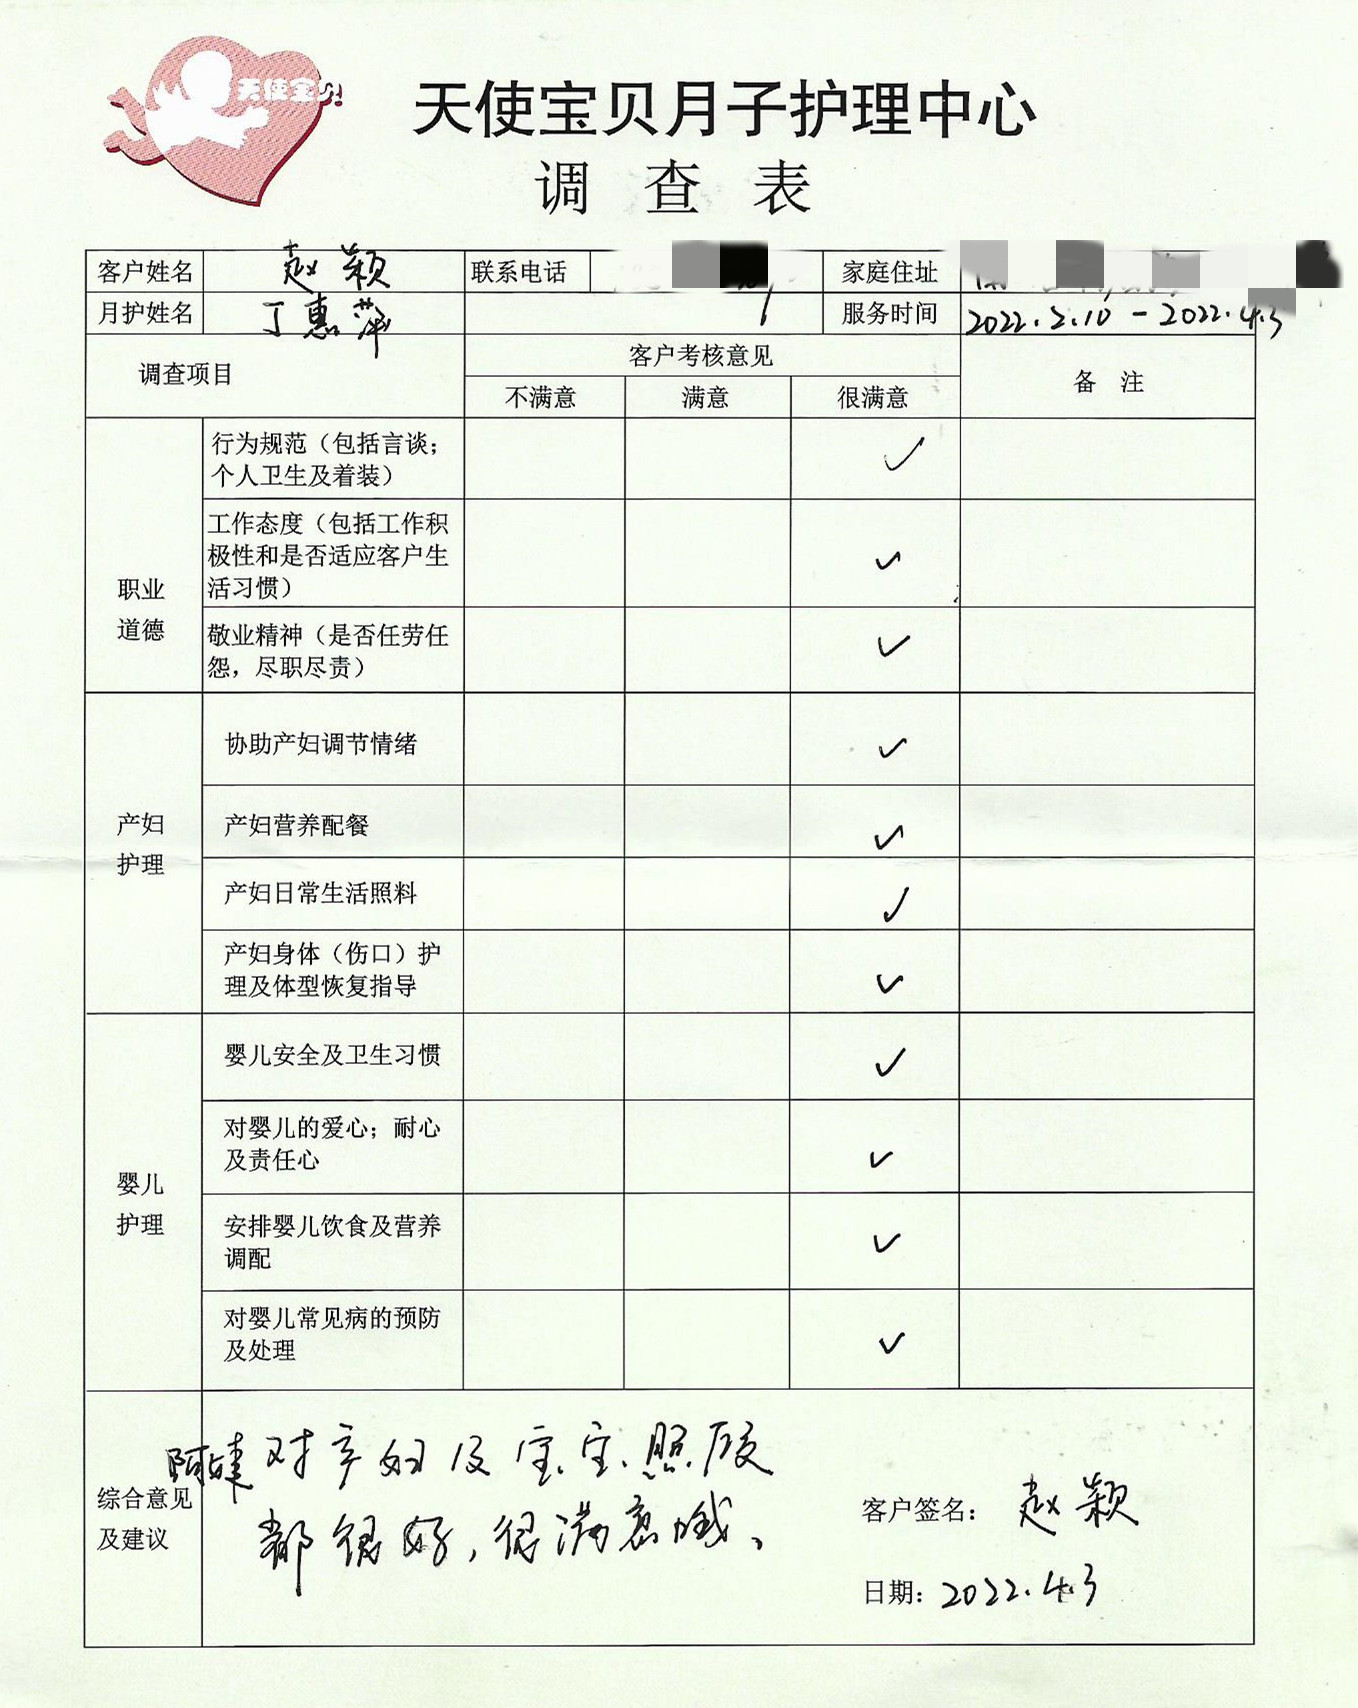 天使宝贝
天使宝贝月子护理中心
调 查 表
客户姓名 赵颖 联系电话 家庭住址
月护姓名 丁惠萍 服务时间 2022.2.10 - 2022.4.3
调查项目 客户考核意见 备 注
不满意 满意 很满意
职业
道德
行为规范（包括言谈；
个人卫生及着装） ✓
工作态度（包括工作积
极性和是否适应客户生
活习惯） ✓
敬业精神（是否任劳任
怨，尽职尽责） ✓
产妇
护理
协助产妇调节情绪 ✓
产妇营养配餐 ✓
产妇日常生活照料 ✓
产妇身体（伤口）护
理及体型恢复指导 ✓
婴儿
护理
婴儿安全及卫生习惯 ✓
对婴儿的爱心；耐心
及责任心 ✓
安排婴儿饮食及营养
调配 ✓
对婴儿常见病的预防
及处理 ✓
综合意见
及建议
阿姨对产妇及宝宝照顾
都很好，很满意哦。
客户签名： 赵颖
日期：2022.4.3